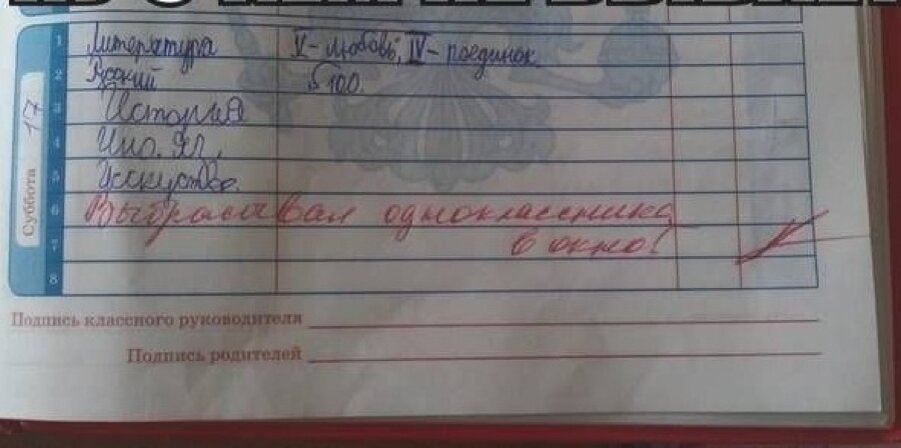 Суббота 17
1 Литература V - любовь, IV - поединок
2 Русский § 100.
3 История
4 Ино. яз.
5 Исскуство.
6 Выбрасавал одноклассника
7 в окно!
8
Подпись классного руководителя
Подпись родителей